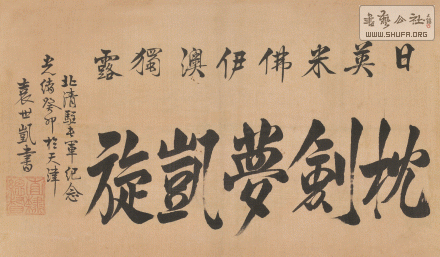 日英米佛伊澳獨露
枕劍夢凱旋
北清駐屯軍纪念
光緒癸卯於天津
袁世凱書
书艺公社
www.SHUFA.org